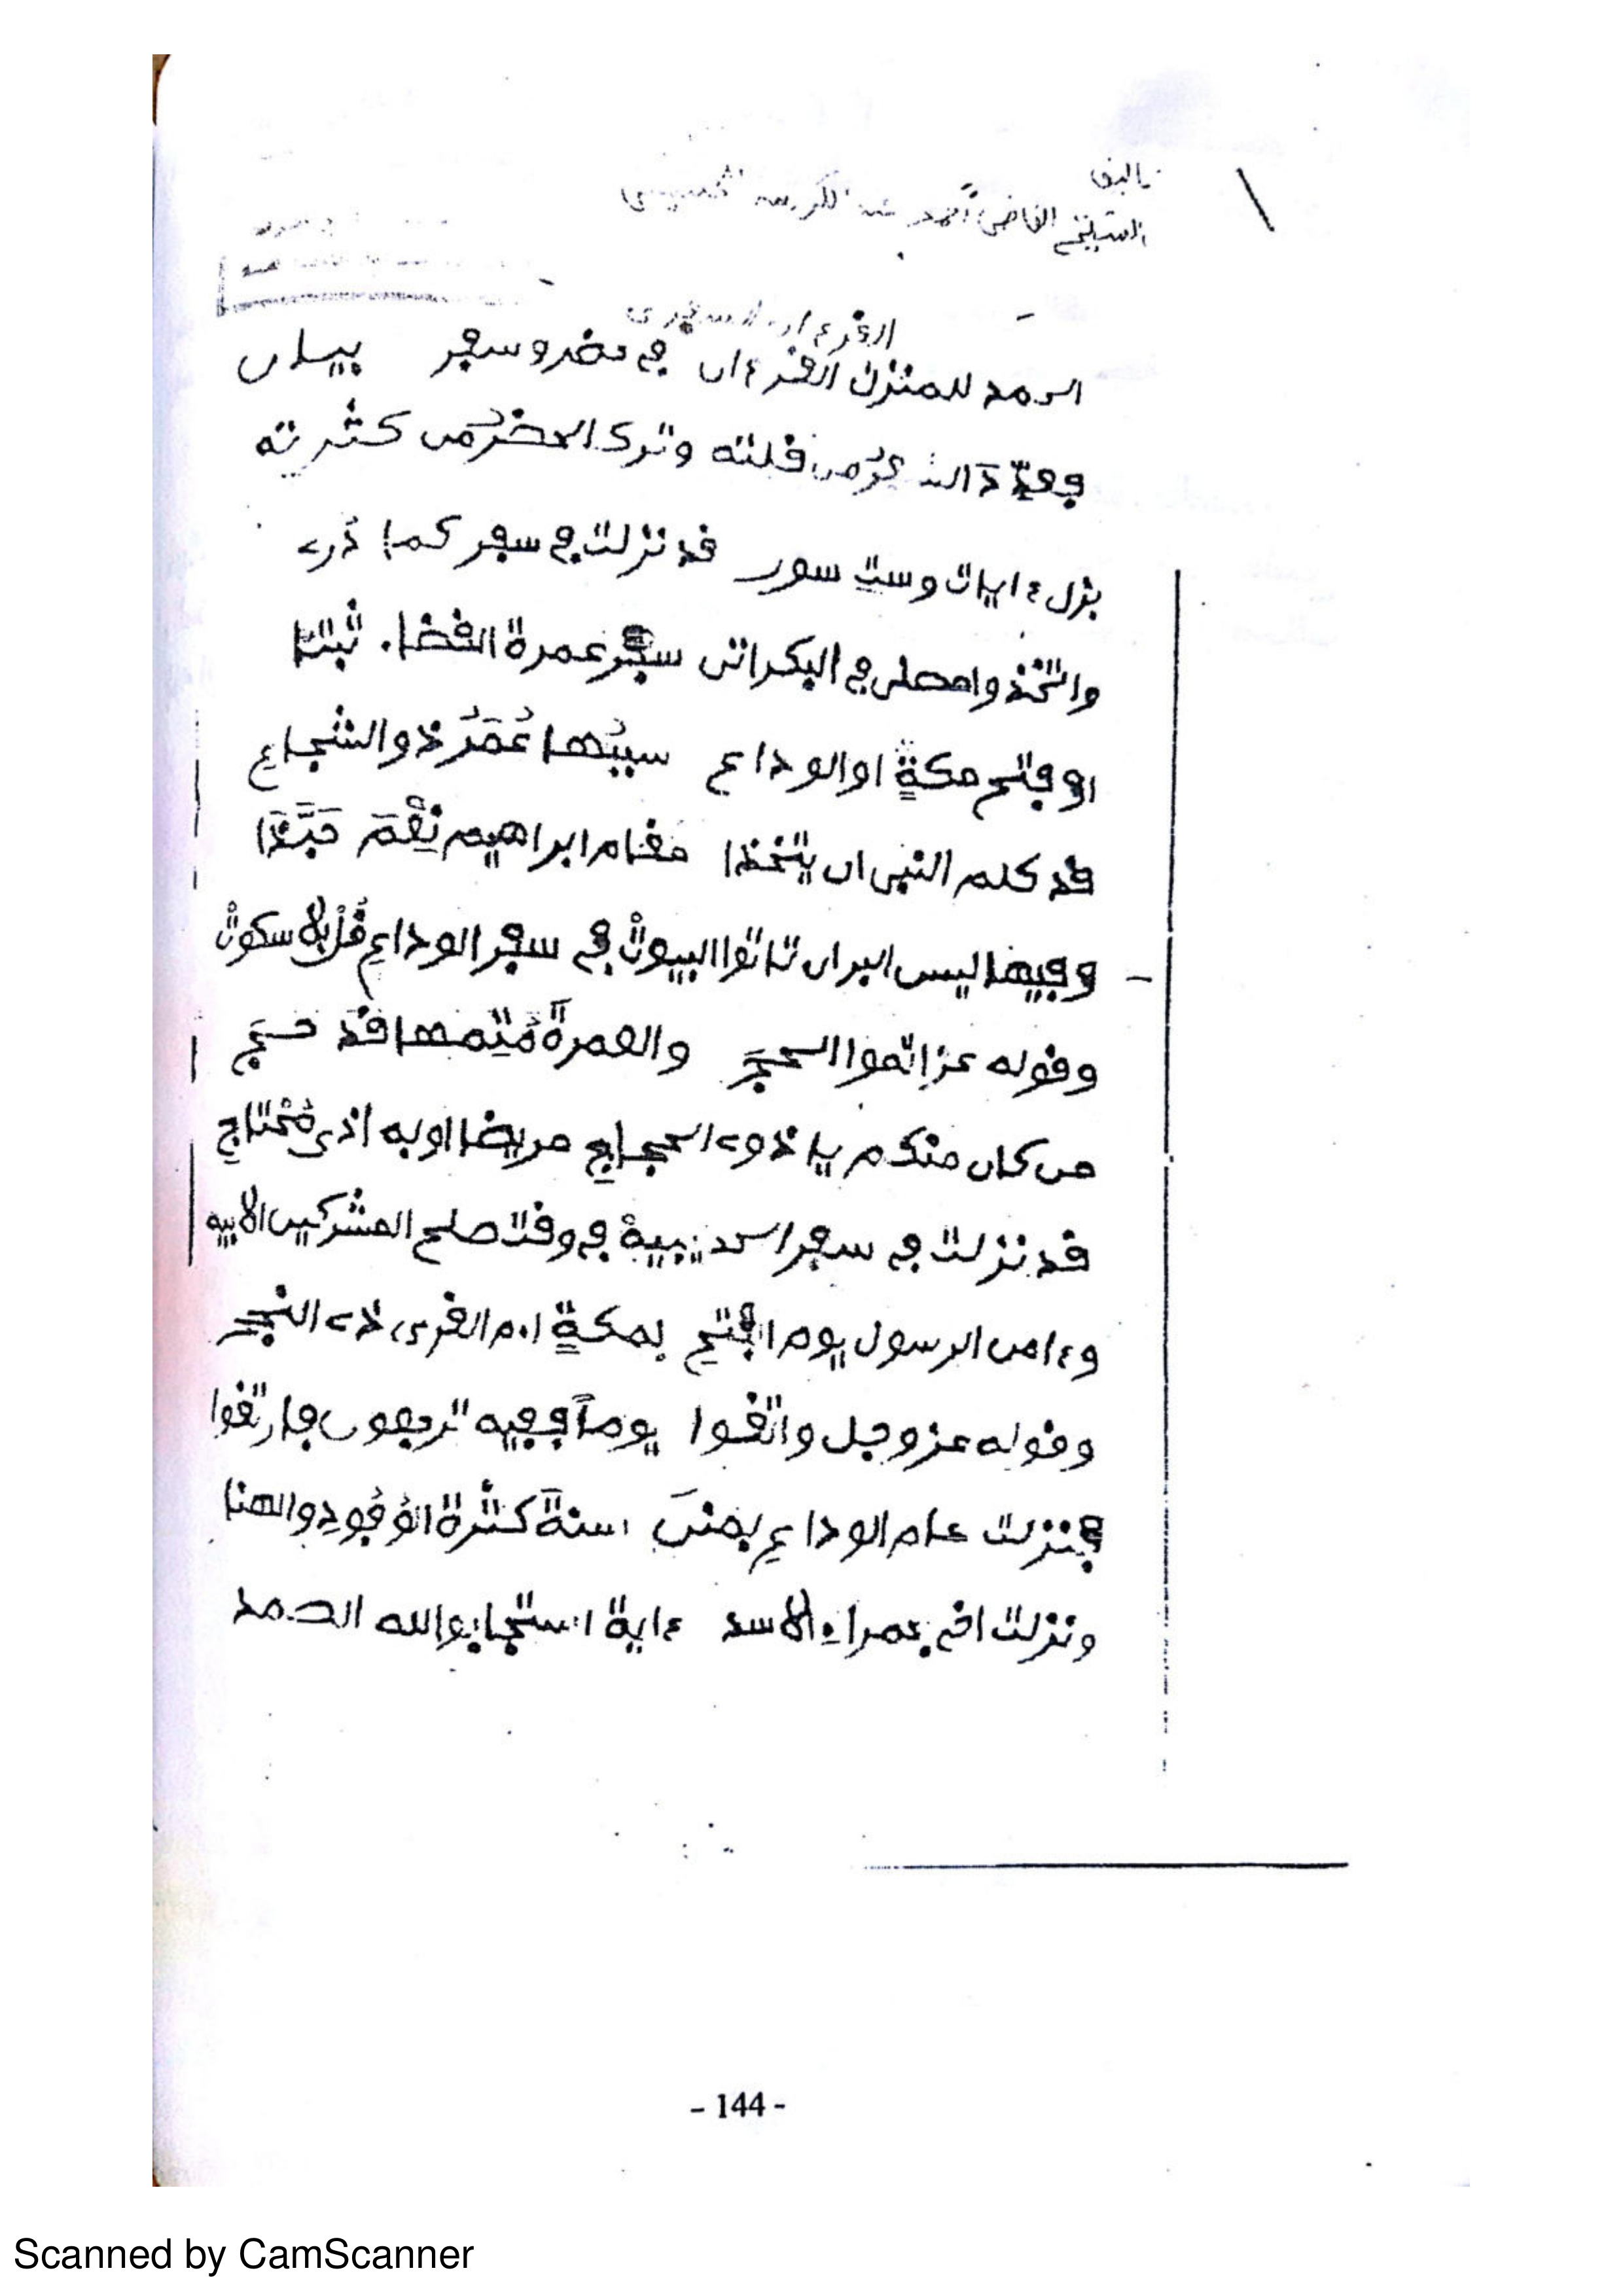 تاليف
الشيخ القاضي احمد عبد الكريم
القرءان السفرى
الحمد للمنزل القرءان في حضر وسفر بيان
فعدد من قلته وترك الحضر من كثرته
نزل ءايات وست سور قد نزلت في سفر كما درء
واتخذوا مصلى في البكر اتى سفر عمرة القضا. ثبتا
او فتح مكة او الوداع سببُها عُمَرُ ذو الشجاع
قد كلم النبى ان يتخذا مقام ابراهيم نِعْمَ حَبَّذَا
وفيها ليس البر ان تاتوا البيوتْ في سفر الوداع قُلْ بلا سكوتْ
وقوله عز اتموا الحج والعمرةَ مُتِمها قد حج
من كان منكم يا ذوى الحجاج مريضا او به اذى مُحْتاج
قد نزلت في سفر الحديبية في وقت صلح المشركين الابيه
وءامن الرسول يوم الفتح بمكة ام القرى النجح
وقوله عز وجل واتقوا يوماً ففيه ترجعون فارتقوا
فنزلت عام الوداع بمنى سنةَ كثرة الوُفُودِ والهنا
ونزلت في حمراء الاسد ءاية استجابوا لله الصمد
- 144 -
Scanned by CamScanner